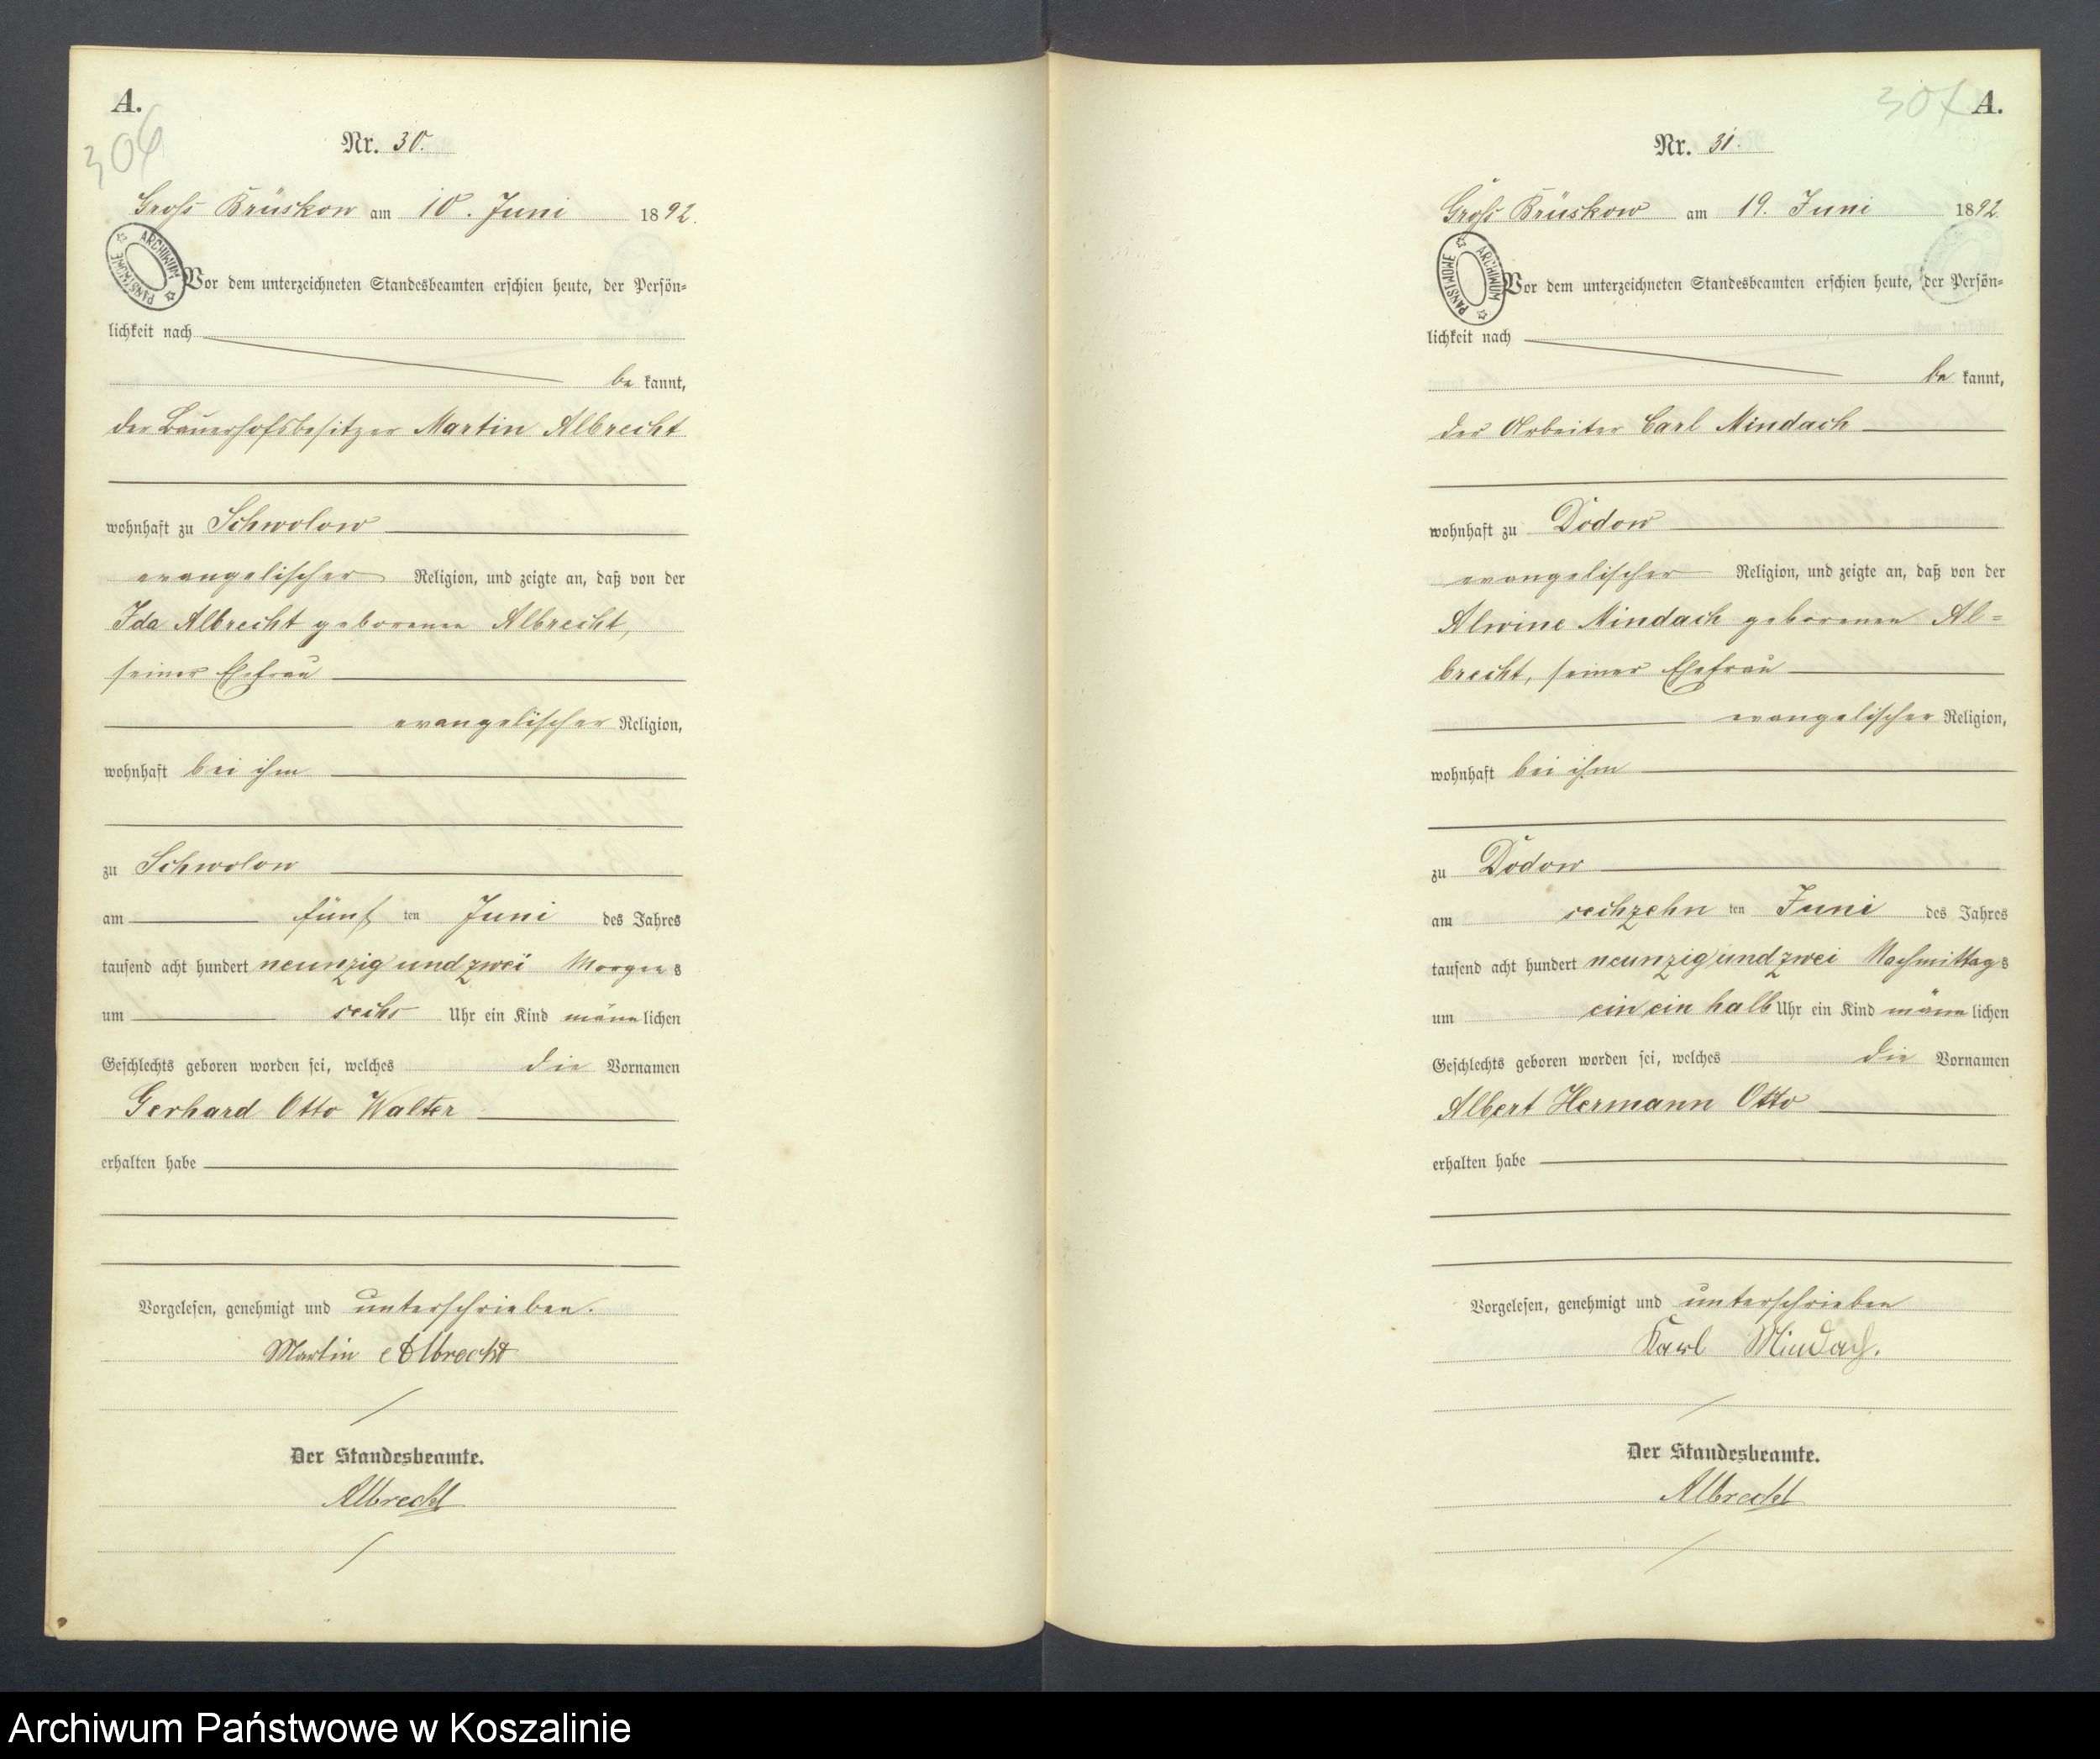 A.
306
Nr. 30.
Gross Brüskow am 10. Juni 1892.
ARCHIWUM PAŃSTWOWE
Vor dem unterzeichneten Standesbeamten erschien heute, der Persön=
lichkeit nach
be kannt,
der Bauerhofsbesitzer Martin Albrecht
wohnhaft zu Schwolow
evangelischer Religion, und zeigte an, daß von der
Ida Albrecht geborenen Albrecht,
seiner Ehefrau
evangelischer Religion,
wohnhaft bei ihm
zu Schwolow
am fünf ten Juni des Jahres
tausend acht hundert neunzig und zwei Morgens
um sechs Uhr ein Kind männlichen
Geschlechts geboren worden sei, welches die Vornamen
Gerhard Otto Walter
erhalten habe
Vorgelesen, genehmigt und unterschrieben.
Martin Albrecht
Der Standesbeamte.
Albrecht
307 A.
Nr. 31.
Gross Brüskow am 19. Juni 1892.
ARCHIWUM PAŃSTWOWE
Vor dem unterzeichneten Standesbeamten erschien heute, der Persön=
lichkeit nach
be kannt,
der Arbeiter Carl Mindach
wohnhaft zu Dodow
evangelischer Religion, und zeigte an, daß von der
Alwine Mindach geborenen Al=
brecht, seiner Ehefrau
evangelischer Religion,
wohnhaft bei ihm
zu Dodow
am sechzehn ten Juni des Jahres
tausend acht hundert neunzig und zwei Nachmittags
um ein ein halb Uhr ein Kind männlichen
Geschlechts geboren worden sei, welches die Vornamen
Albert Hermann Otto
erhalten habe
Vorgelesen, genehmigt und unterschrieben
Karl Mindach.
Der Standesbeamte.
Albrecht
Archiwum Państwowe w Koszalinie